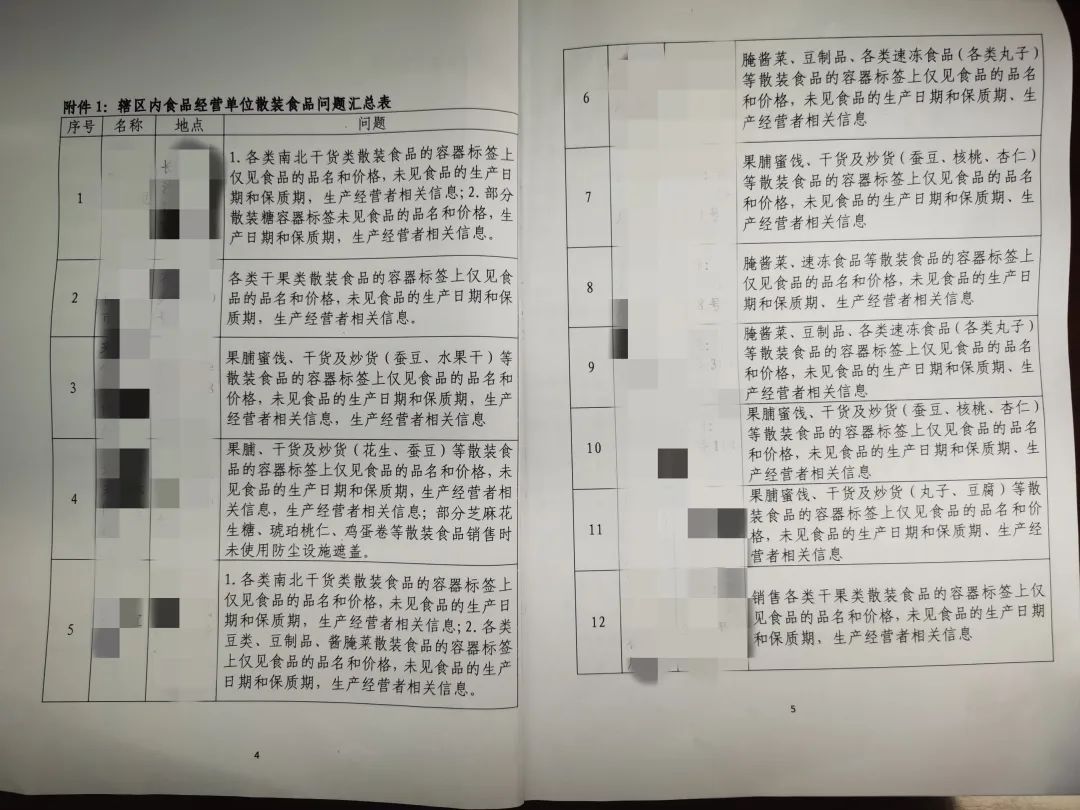 附件1：辖区内食品经营单位散装食品问题汇总表
序号 名称 地点 问题
1
1.各类南北干货类散装食品的容器标签上
仅见食品的品名和价格，未见食品的生产日
期和保质期，生产经营者相关信息;2.部分
散装糖容器标签未见食品的品名和价格，生
产日期和保质期，生产经营者相关信息。
2
各类干果类散装食品的容器标签上仅见食
品的品名和价格，未见食品的生产日期和保
质期，生产经营者相关信息。
3
果脯蜜饯、干货及炒货（蚕豆、水果干）等
散装食品的容器标签上仅见食品的品名和
价格，未见食品的生产日期和保质期，生产
经营者相关信息，生产经营者相关信息
4
果脯、干货及炒货（花生、蚕豆）等散装食
品的容器标签上仅见食品的品名和价格，未
见食品的生产日期和保质期，生产经营者相
关信息，生产经营者相关信息；部分芝麻花
生糖、琥珀桃仁、鸡蛋卷等散装食品销售时
未使用防尘设施遮盖。
5
1.各类南北干货类散装食品的容器标签上
仅见食品的品名和价格，未见食品的生产日
期和保质期，生产经营者相关信息;2.各类
豆类、豆制品、酱腌菜散装食品的容器标签
上仅见食品的品名和价格，未见食品的生产
日期和保质期，生产经营者相关信息。
4
6
腌酱菜、豆制品、各类速冻食品（各类丸子）
等散装食品的容器标签上仅见食品的品名
和价格，未见食品的生产日期和保质期、生
产经营者相关信息
7
果脯蜜饯、干货及炒货（蚕豆、核桃、杏仁）
等散装食品的容器标签上仅见食品的品名
和价格，未见食品的生产日期和保质期、生
产经营者相关信息
号
8
腌酱菜、速冻食品等散装食品的容器标签上
仅见食品的品名和价格，未见食品的生产日
期和保质期、生产经营者相关信息
8号
9
腌酱菜、豆制品、各类速冻食品（各类丸子）
等散装食品的容器标签上仅见食品的品名
和价格，未见食品的生产日期和保质期、生
产经营者相关信息
3
10
果脯蜜饯、干货及炒货（蚕豆、核桃、杏仁）
等散装食品的容器标签上仅见食品的品名
和价格，未见食品的生产日期和保质期、生
产经营者相关信息
11
果脯蜜饯、干货及炒货（丸子、豆腐）等散
装食品的容器标签上仅见食品的品名和价
格，未见食品的生产日期和保质期、生产经
营者相关信息
12
销售各类干果类散装食品的容器标签上仅
见食品的品名和价格，未见食品的生产日期
和保质期，生产经营者相关信息
5